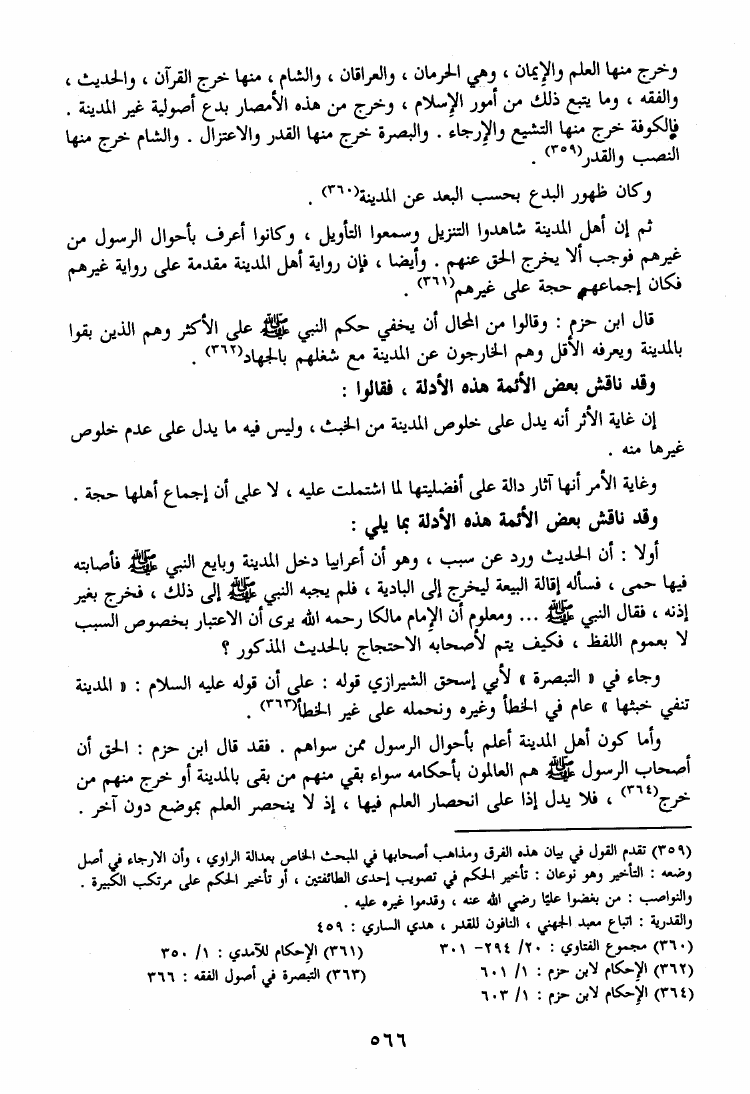 وخرج منها العلم والإيمان ، وهي الحرمان ، والعراقان ، والشام ، منها خرج القرآن ، والحديث ،
والفقه ، وما يتبع ذلك من أمور الإسلام ، وخرج من هذه الأمصار بدع أصولية غير المدينة .
فالكوفة خرج منها التشيع والإرجاء . والبصرة خرج منها القدر والاعتزال . والشام خرج منها
النصب والقدر(٣٥٩) .
وكان ظهور البدع بحسب البعد عن المدينة(٣٦٠) .
ثم إن أهل المدينة شاهدوا التنزيل وسمعوا التأويل ، وكانوا أعرف بأحوال الرسول من
غيرهم فوجب ألا يخرج الحق عنهم . وأيضا ، فإن رواية أهل المدينة مقدمة على رواية غيرهم
فكان إجماعهم حجة على غيرهم(٣٦١) .
قال ابن حزم : وقالوا من المحال أن يخفي حكم النبي ﷺ على الأكثر وهم الذين بقوا
بالمدينة ويعرفه الأقل وهم الخارجون عن المدينة مع شغلهم بالجهاد(٣٦٢) .
وقد ناقش بعض الأئمة هذه الأدلة ، فقالوا :
إن غاية الأثر أنه يدل على خلوص المدينة من الخبث ، وليس فيه ما يدل على عدم خلوص
غيرها منه .
وغاية الأمر أنها آثار دالة على أفضليتها لما اشتملت عليه ، لا على أن إجماع أهلها حجة .
وقد ناقش بعض الأئمة هذه الأدلة بما يلي :
أولا : أن الحديث ورد عن سبب ، وهو أن أعرابيا دخل المدينة وبايع النبي ﷺ فأصابته
فيها حمى ، فسأله إقالة البيعة ليخرج إلى البادية ، فلم يجبه النبي ﷺ إلى ذلك ، فخرج بغير
إذنه ، فقال النبي ﷺ ... ومعلوم أن الإمام مالكا رحمه الله يرى أن الاعتبار بخصوص السبب
لا بعموم اللفظ ، فكيف يتم لأصحابه الاحتجاج بالحديث المذكور ؟
وجاء في « التبصرة » لأبي إسحق الشيرازي قوله : على أن قوله عليه السلام : « المدينة
تنفي خبثها » عام في الخطأ وغيره ونحمله على غير الخطأ(٣٦٣) .
وأما كون أهل المدينة أعلم بأحوال الرسول ممن سواهم . فقد قال ابن حزم : الحق أن
أصحاب الرسول ﷺ هم العالمون بأحكامه سواء بقي منهم من بقى بالمدينة أو خرج منهم من
خرج(٣٦٤) ، فلا يدل إذا على انحصار العلم فيها ، إذ لا ينحصر العلم بموضع دون آخر .
(٣٥٩) تقدم القول في بيان هذه الفرق ومذاهب أصحابها في المبحث الخاص بعدالة الراوي ، وأن الارجاء في أصل
وضعه : التأخير وهو نوعان : تأخير الحكم في تصويب إحدى الطائفتين ، أو تأخير الحكم على مرتكب الكبيرة .
والنواصب : من بغضوا عليًا رضي الله عنه ، وقدموا غيره عليه .
والقدرية : اتباع معبد الجهني ، النافون للقدر ، هدي الساري : ٤٥٩
(٣٦٠) مجموع الفتاوي : ٢٠/ ٢٩٤– ٣٠١ (٣٦١) الإحكام للآمدي : ١/ ٣٥٠
(٣٦٢) الإحكام لابن حزم : ١/ ٦٠١ (٣٦٣) التبصرة في أصول الفقه : ٣٦٦
(٣٦٤) الإحكام لابن حزم : ١/ ٦٠٣
٥٦٦